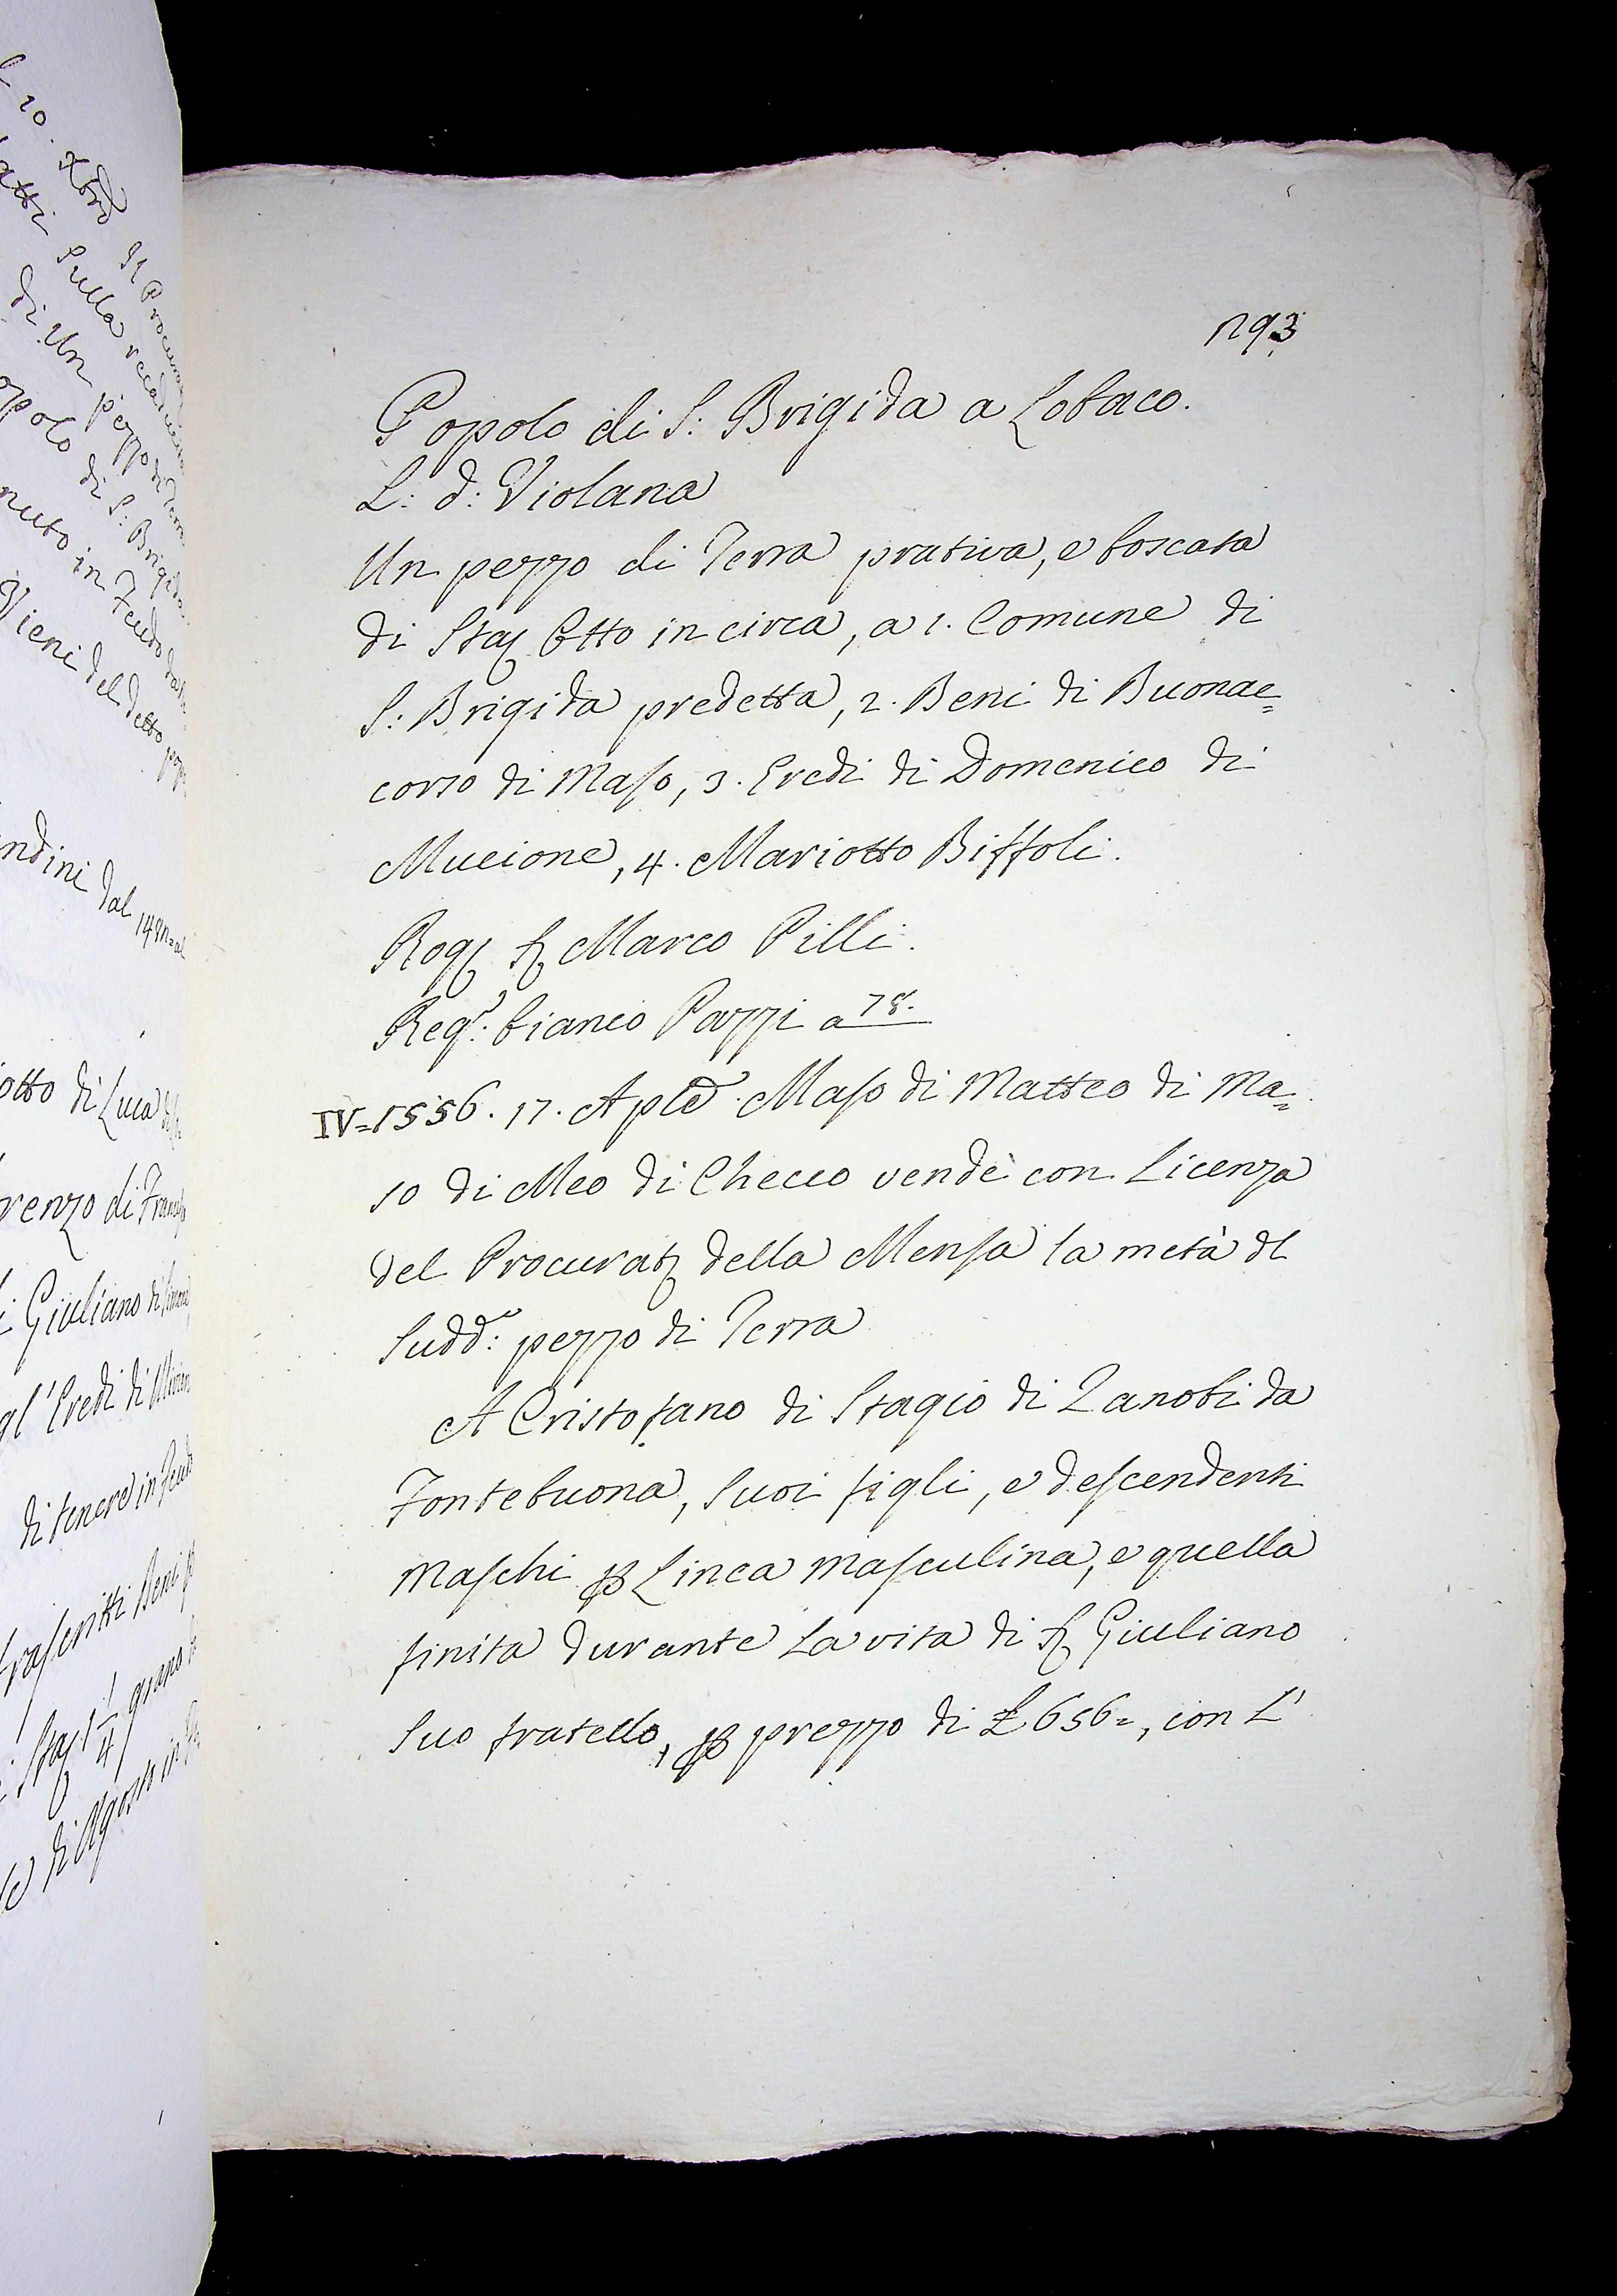 293
Popolo di S: Brigida a Lobaco.
L: d: Violana
Un pezzo di Terra prativa, e boscata
di Staj Otto in circa, a 1. Comune di
S: Brigida predetta, 2. Beni di Buonac=
corso di Maso, 3. Eredi di Domenico di
Muccione, 4. Mariotto Biffoli.
Rog Marco Pilli.
Regº: bianco Pazzi a 78.
IV=1556. 17. Aple. Maso di Matteo di Ma=
so di Meo di Checco vendè con Licenza
del Procurat della Mensa la metà dl
Sudd: pezzo di Terra
A Cristofano di Stagio di Zanobi da
Fontebuona, Suoi figli, e descendenti
Maschi p Linea Masculina, e quella
finita durante La vita di Giuliano
Suo fratello, p prezzo di £ 656=, con L'
otto di Luca
renzo di
Giuliano di
gl' Eredi di
di tenere in
di Un pezzo di
opolo di S: Brigida
nuto in Feudo
Vieni del detto
ndini dal